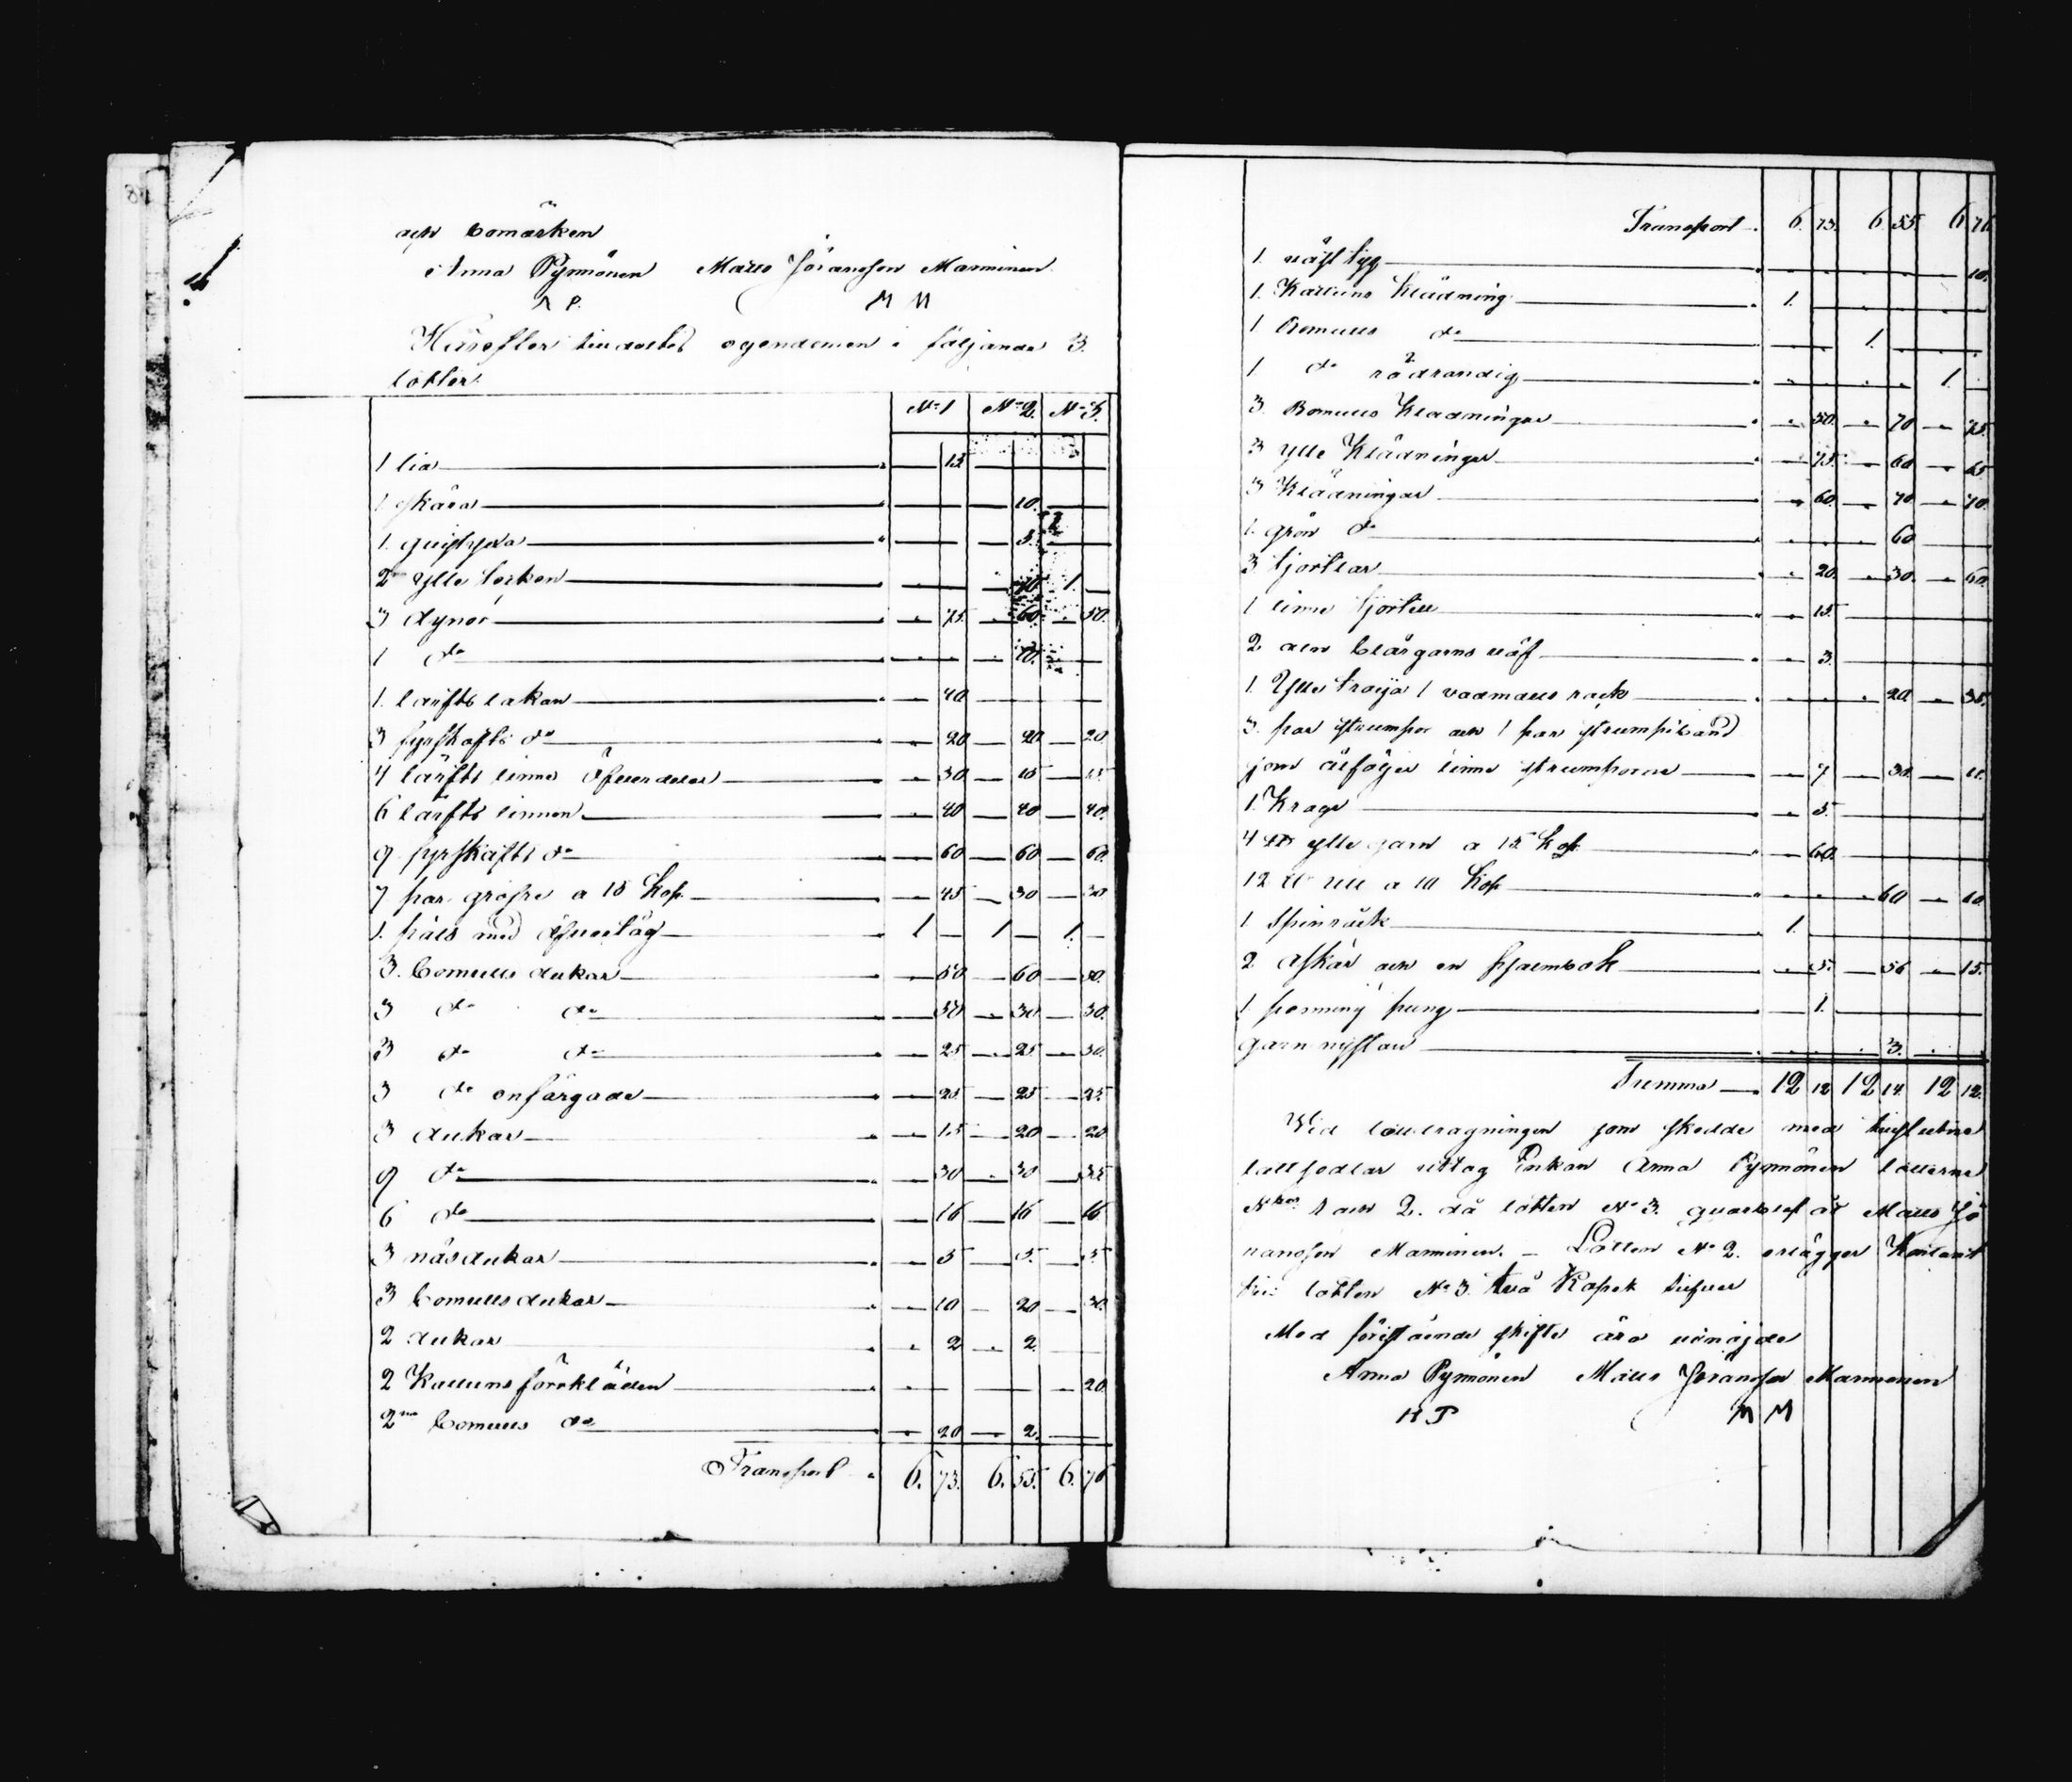 och bomärken
Anna Pynnönen Matts Jöransson Manninen
A P. M M
Härefter lindades egendomen i följande 3.
lotter.
No 1 No 2. No 3.
1 lia 15
1 skära 10.
1. 5.
2ne ylle 10 1.
3 dynor 75. 60. 50.
1 do 10.
1. lärfts lakan 40
3 fyrskafts do 20 20 20
4 lärfts linnes öfverdelar 30 15 15
6 lärfts linnen 40 40 40.
9 fyrskafts do 60 60 60.
7 par a 15 Kop. 45 30 30
1. päls med öfvertåg 1 1 1.
3. bomulls dukar 50 60 50.
3 do do 30 30 30.
3 do do 25 25 30.
3 do enfärgade 25 25 25.
3 dukar 15 20 20
9 do 30 30 35
6 do 16 16 16
3 näsdukar 5 5. 5.
3 bomullsdukar 10 20 30.
2 dukar 2 2
2 Kattunsförkläden 20
2ne bomulls do 20 2.
Transport 6. 73. 6. 55. 6. 76
Transport 6. 73. 6 55. 6 76
1. väf tyg 10.
1. Kattuns klädning 1.
1 Bomulls do 1.
1 do rödrandig 1.
3. Bomulls klädningar 50. 70 75.
3 ylle Klädningar 75. 60 65
3 Klädningar 60. 70 70.
1. grön do 60
3 tjortlar 20. 30. 60.
1 linne tjortill 15.
2 aln blårgarns väf 3.
1. Ylle tröija 1 vadmals rock 20 35.
3. par strumpor och 1 par strumpeband
som åtföljer linne strumporne 7 30. 11.
1. Krage 5.
4 ℔ ylle garn a 15 Kop. 60.
12 ℔ ull a 10 Kop 60 60
1. Spinråck 1.
2 askar och en psalmbok 5. 56 15.
1 penning pung 1.
garn nystan 3.
Summa 12 12 12 14. 12 12.
Wid lottdragningen som skedde med tillslutne
lottsedlar uttog Enkan Anna Pynnönen lotterne
N:ris 1 och 2. då lotten No 3. quarblef åt Matts Jö
ransson Manninen. Lotten No 2. erlägger Kontant
till lotten No 3. två Kopek silfver
Med föreståendes skifte äro vi nöjde
Anna Pynnönen Matts Jöransson Manninen
A P M M